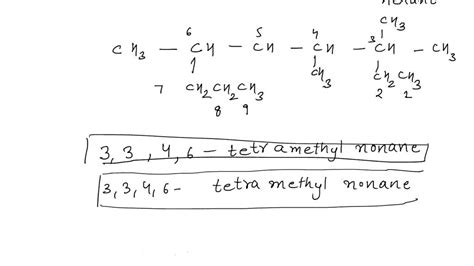 nonane
CH3
6 5 4 3
CH3 - CH - CH - CH - CH - CH3
7 CH2CH2CH3 CH3 CH2CH3
8 9 2 1
3, 3, 4, 6 - tetramethyl nonane
3, 3, 4, 6 - tetra methyl nonane